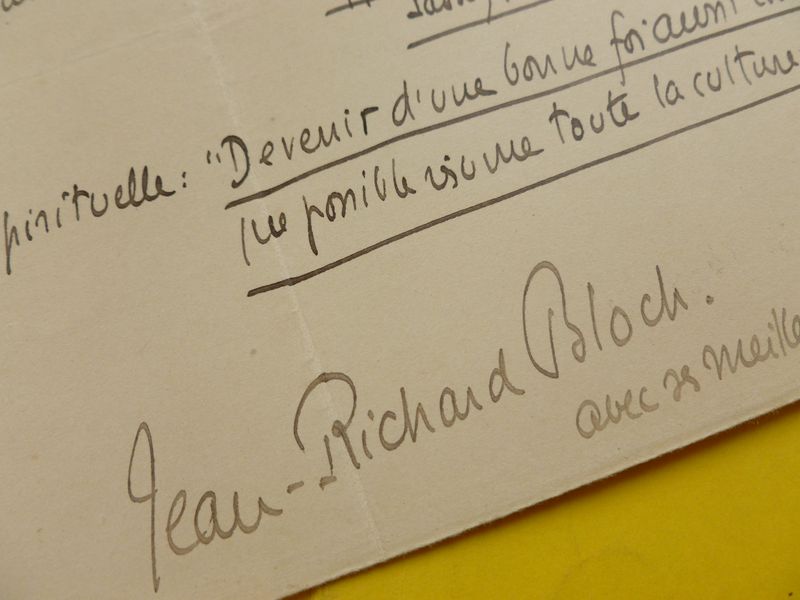 pirituelle: "Devenir d'une bonne foi aussi
que possible vis à vis toute la culture
Jean-Richard Bloch.
avec ses meille